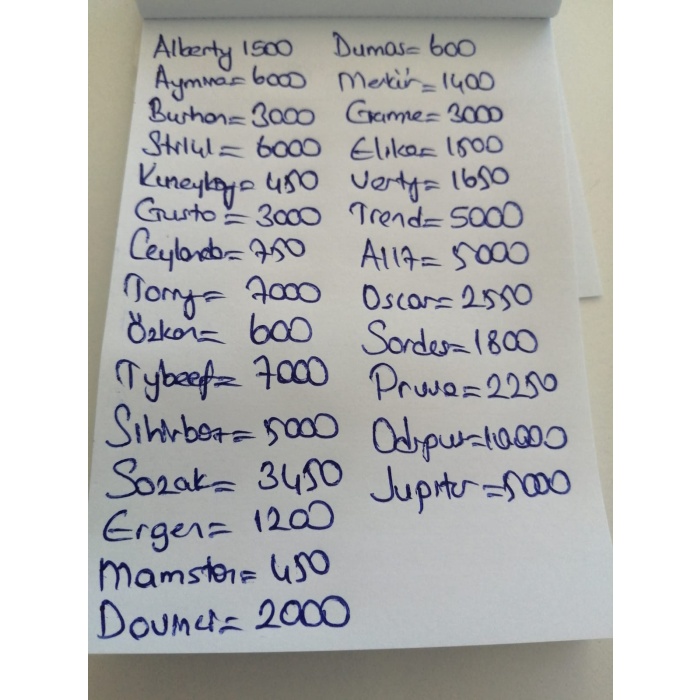 Alberty 1500
Aymina= 6000
Burhan= 3000
Strlyl= 6000
Kuneykoy= 450
Gusto= 3000
Ceylando= 750
Tomy= 7000
Özkan= 600
Tybeef= 7000
Sihirbaz= 5000
Sozak= 3450
Ergen= 1200
Mamster= 450
= 2000
Dumas= 600
Merkür= 1400
Gamme= 3000
Elika= 1500
Verty= 1650
Trend= 5000
A117= 5000
Oscar= 2550
Sardes= 1800
Pruva= 2250
=10.000
Jupiter=5000